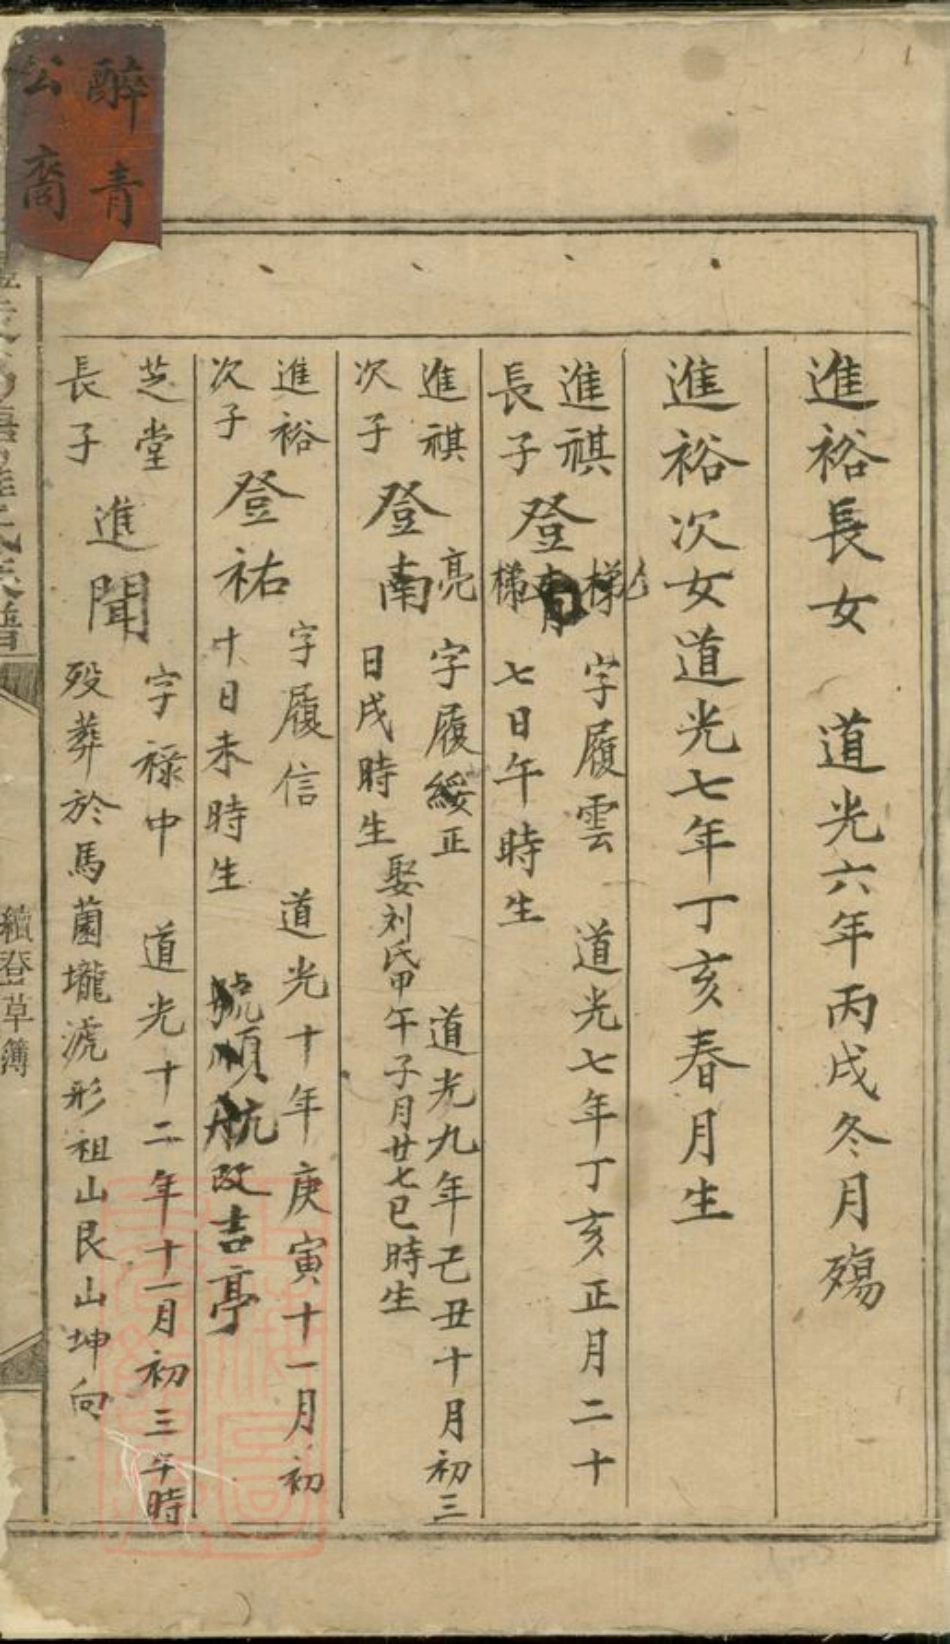 醉青
公裔
進裕長女　道光六年丙戌冬月殤
進裕次女道光七年丁亥春月生
進祺
長子
登
梯
梯
字履雲　道光七年丁亥正月二十
七日午時生
進祺
次子
登南
亮
字履綏正　道光九年己丑十月初三
日戌時生　娶刘氏甲午子月廿七巳時生
進裕
次子
登祐
字履信　道光十年庚寅十一月初
十日未時生　號順航改吉亭
芝堂
長子
進聞
字祿中　道光十二年十一月初三午時
歿葬於馬薗壠淲形祖山艮山坤向
氏族譜
續登草簿